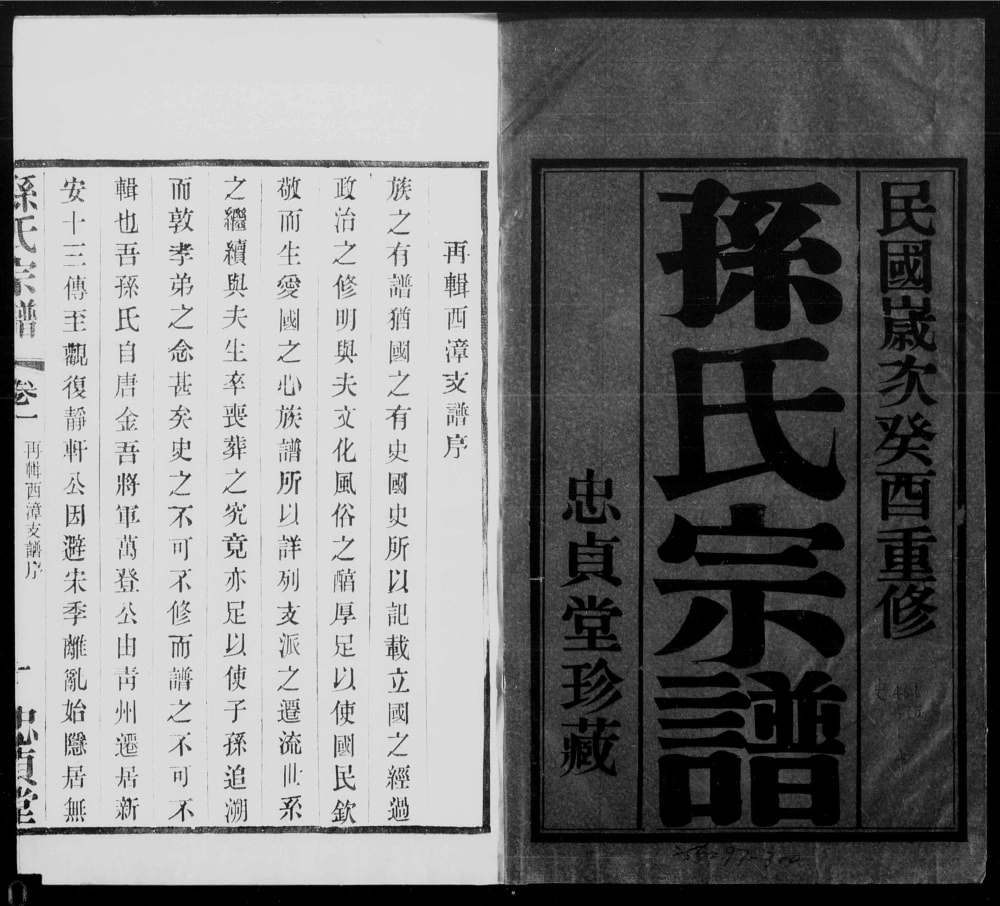 民國嵗次癸酉重修
孫氏宗譜
忠貞堂珍藏
再輯西漳支譜序
族之有譜猶國之有史國史所以記載立國之經過
政治之修明與夫文化風俗之醕厚足以使國民欽
敬而生愛國之心族譜所以詳列支派之遷流世系
之繼續與夫生卒喪葬之究竟亦足以使子孫追溯
而敦孝弟之念甚矣史之不可不修而譜之不可不
輯也吾孫氏自唐金吾將軍萬登公由青州遷居新
安十三傳至觀復靜軒公因避宋季離亂始隱居無
孫氏宗譜
卷一
再輯西漳支譜序
一
忠貞堂